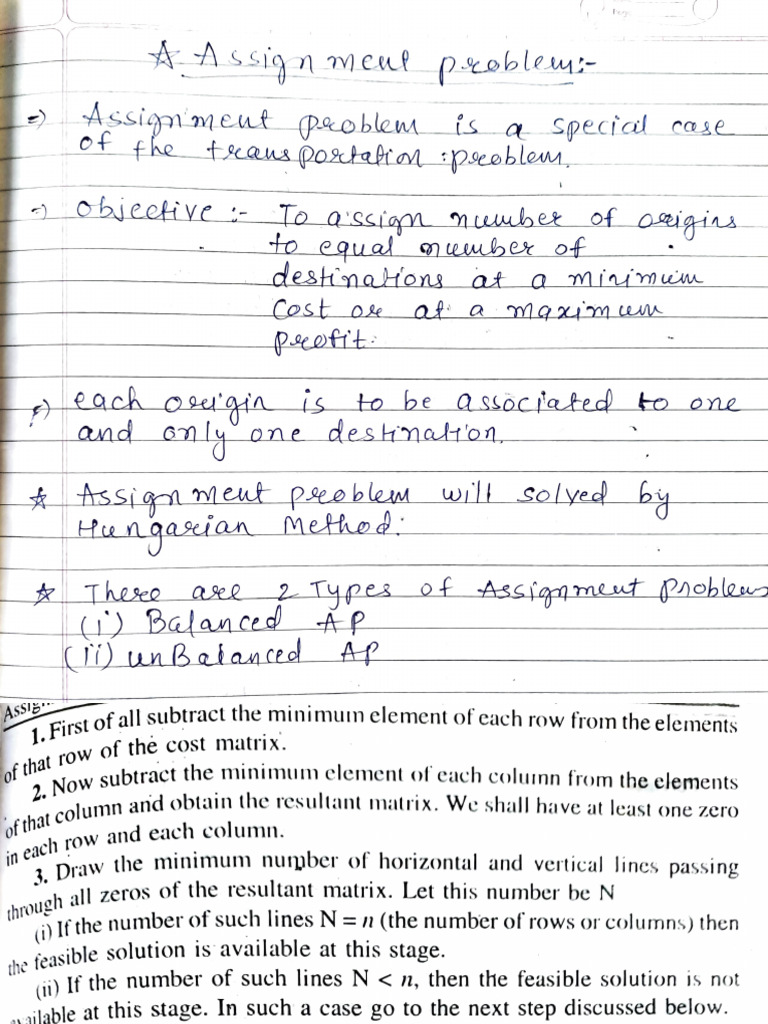 ☆ Assignment problem:-
=) Assignment problem is a special case
of the transportation problem.
=) Objective :- To assign number of origins
to equal number of
destinations at a minimum
cost or at a maximum
profit.
=) each origin is to be associated to one
and only one destination.
☆ Assignment problem will solved by
Hungarian Method.
☆ There are 2 Types of Assignment Problems
(i) Balanced AP
(ii) unBalanced AP
1. First of all subtract the minimum element of each row from the elements
of that row of the cost matrix.
2. Now subtract the minimum element of each column from the elements
of that column and obtain the resultant matrix. We shall have at least one zero
in each row and each column.
3. Draw the minimum number of horizontal and vertical lines passing
through all zeros of the resultant matrix. Let this number be N
(i) If the number of such lines N = n (the number of rows or columns) then
the feasible solution is available at this stage.
(ii) If the number of such lines N < n, then the feasible solution is not
available at this stage. In such a case go to the next step discussed below.